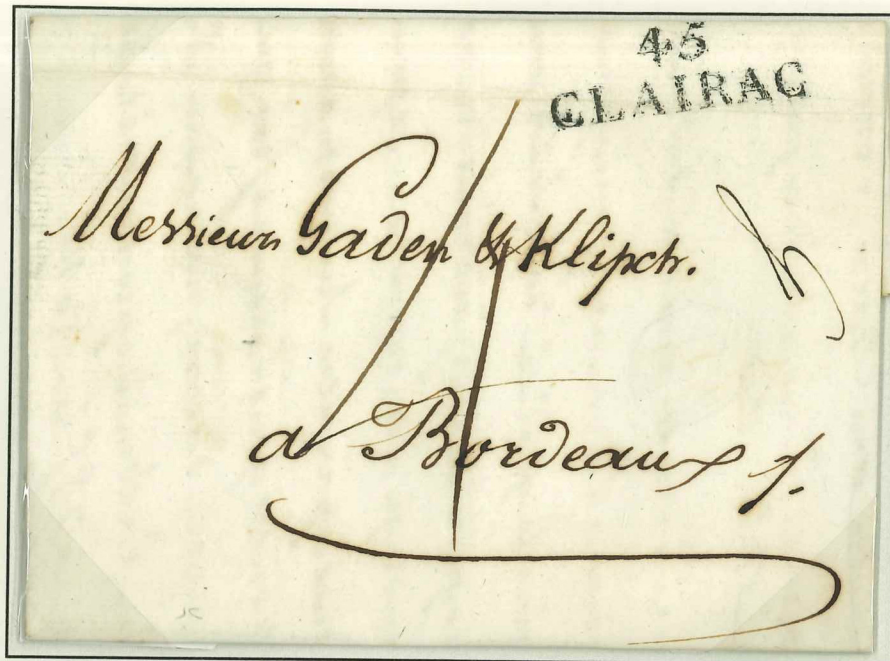 45
CLAIRAC
Messieurs Gaden & Klipsch.
4
a Bordeaux